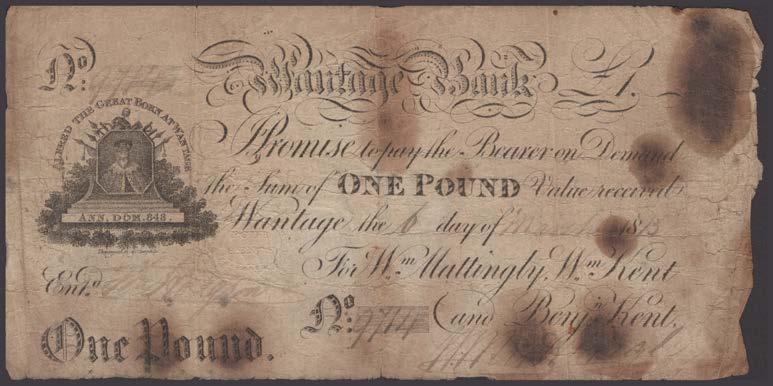 No:
Wantage Bank £1.
ALFRED THE GREAT BORN AT WANTAGE
ANN. DOM. 848.
I Promise to pay the Bearer on Demand
the Sum of ONE POUND Value received
Wantage the 6 day of March 1813
For Wm Mattingly, Wm Kent
Entd
No: 9714 and Benjn Kent.
One Pound.